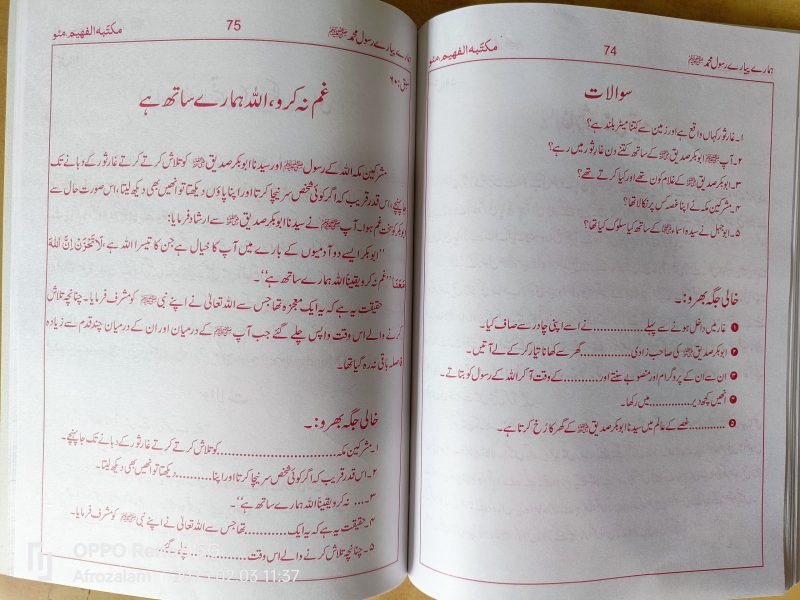 ہمارے پیارے رسول محمد ﷺ 74 مکتبہ الفہیم، مئو
سوالات
۱۔ غار ثور کہاں واقع ہے اور زمین سے کتنا میٹر بلند ہے؟
۲۔ آپ ﷺ ابوبکر صدیق ؓ کے ساتھ کتنے دن غار ثور میں رہے؟
۳۔ ابوبکر صدیق ؓ کے غلام کون تھے اور کیا کرتے تھے؟
۴۔ مشرکین مکہ نے اپنا غصہ کس پر نکالا تھا؟
۵۔ ابوجہل نے سیدہ اسماء ؓ کے ساتھ کیا سلوک کیا تھا؟
خالی جگہ بھرو:۔
❶ غار میں داخل ہونے سے پہلے............نے اسے اپنی چادر سے صاف کیا۔
❷ ابوبکر صدیق ؓ کی صاحب زادی............گھر سے کھانا تیار کر کے لے آتیں۔
❸ ان سے ان کے پروگرام اور منصوبے سنتے اور..........کے وقت آکر اللہ کے رسول کو بتاتے۔
❹ انھیں کچھ دیر............میں رکھا۔
❺ ............غصے کے عالم میں سیدنا ابوبکر صدیق ؓ کے گھر کا رخ کرتا ہے۔
ہمارے پیارے رسول محمد ﷺ 75 مکتبہ الفہیم، مئو
سبق:۶۰
غم نہ کرو، اللہ ہمارے ساتھ ہے
مشرکین مکہ اللہ کے رسول ﷺ اور سیدنا ابوبکر صدیق ؓ کو تلاش کرتے کرتے غار ثور کے دہانے تک
جا پہنچے، اس قدر قریب کہ اگر کوئی شخص سر نیچا کرتا اور اپنا پاؤں دیکھتا تو انھیں بھی دیکھ لیتا، اس صورتِ حال سے
ابوبکر کو سخت غم ہوا۔ آپ ﷺ نے سیدنا ابوبکر صدیق ؓ سے ارشاد فرمایا:
’’ابوبکر ایسے دو آدمیوں کے بارے میں آپ کا خیال ہے جن کا تیسرا اللہ ہے،لَا تَحْزَنْ اِنَّ اللّٰهَ
مَعَنَا ’’غم نہ کرو یقیناً اللہ ہمارے ساتھ ہے‘‘۔
حقیقت یہ ہے کہ یہ ایک معجزہ تھا جس سے اللہ تعالیٰ نے اپنے نبی ﷺ کو مشرف فرمایا۔ چنانچہ تلاش
کرنے والے اس وقت واپس چلے گئے جب آپ ﷺ کے درمیان اور ان کے درمیان چند قدم سے زیادہ
فاصلہ باقی نہ رہ گیا تھا۔
خالی جگہ بھرو:۔
۱۔ مشرکین مکہ..............................کو تلاش کرتے کرتے غار ثور کے دہانے تک جا پہنچے۔
۲۔ اس قدر قریب کہ اگر کوئی شخص سر نیچا کرتا اور اپنا..........دیکھتا تو انھیں بھی دیکھ لیتا۔
۳۔ ... نہ کرو یقیناً اللہ ہمارے ساتھ ہے‘‘۔
۴۔ حقیقت یہ ہے کہ یہ ایک............تھا جس سے اللہ تعالیٰ نے اپنے نبی ﷺ کو مشرف فرمایا۔
۵۔ چنانچہ تلاش کرنے والے اس وقت............چلے گئے۔
OPPO
Afrozalam 03 11:37